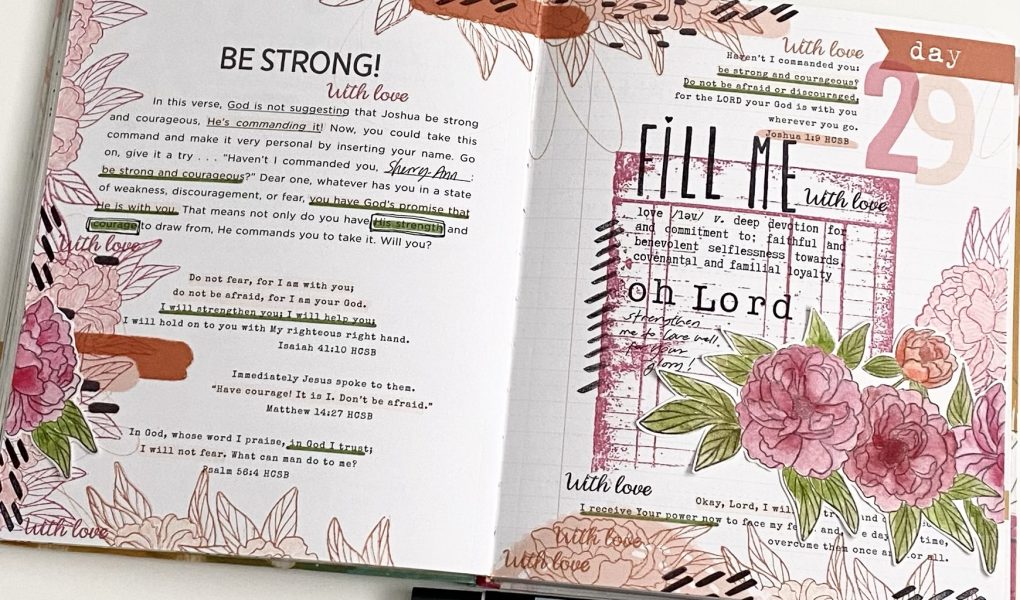 BE STRONG!
With love
In this verse, God is not suggesting that Joshua be strong
and courageous, He's commanding it! Now, you could take this
command and make it very personal by inserting your name. Go
on, give it a try . . . "Haven't I commanded you, Sherry-Ann :
be strong and courageous?" Dear one, whatever has you in a state
of weakness, discouragement, or fear, you have God's promise that
He is with you. That means not only do you have His strength and
courage to draw from, He commands you to take it. Will you?
With love
Do not fear, for I am with you;
do not be afraid, for I am your God.
I will strengthen you; I will help you;
I will hold on to you with My righteous right hand.
Isaiah 41:10 HCSB
Immediately Jesus spoke to them.
"Have courage! It is I. Don't be afraid."
Matthew 14:27 HCSB
In God, whose word I praise, in God I trust;
I will not fear. What can man do to me?
Psalm 56:4 HCSB
With love
With love
day
29
Haven't I commanded you:
be strong and courageous?
Do not be afraid or discouraged,
for the LORD your God is with you
wherever you go.
Joshua 1:9 HCSB
FILL ME
With love
love /ləv/ v. deep devotion for
and commitment to; faithful and
benevolent selflessness towards
covenantal and familial loyalty
oh Lord
strengthen
me to love well,
for your
glory!
With love
Okay, Lord, I will
I receive Your power now to face my and day time,
overcome them once all.
With love
With love